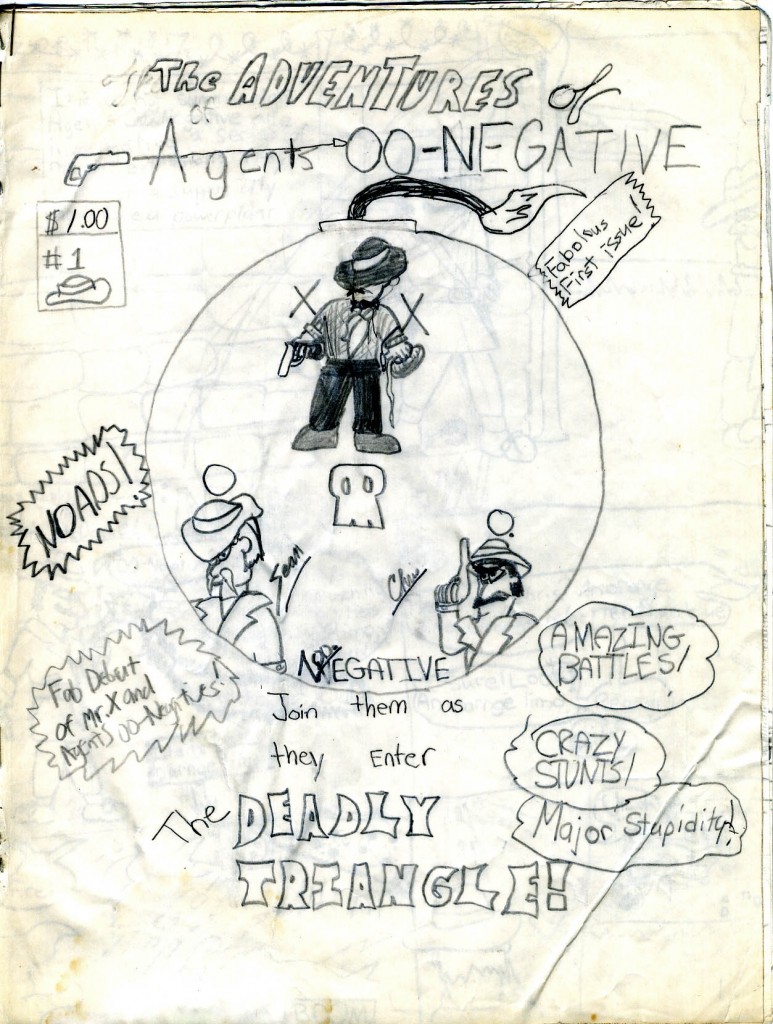 The ADVENTURES of
Agents 00-NEGATIVE
$1.00
#1
Fabolous
First issue!
X X
NO ADS!
Sean
Chris
NEGATIVE
Fab Debut
of Mr. X and
Agents 00-Negatives!
Join them as
they Enter
The DEADLY
TRIANGLE!
AMAZING
BATTLES!
CRAZY
STUNTS!
Major Stupidity!